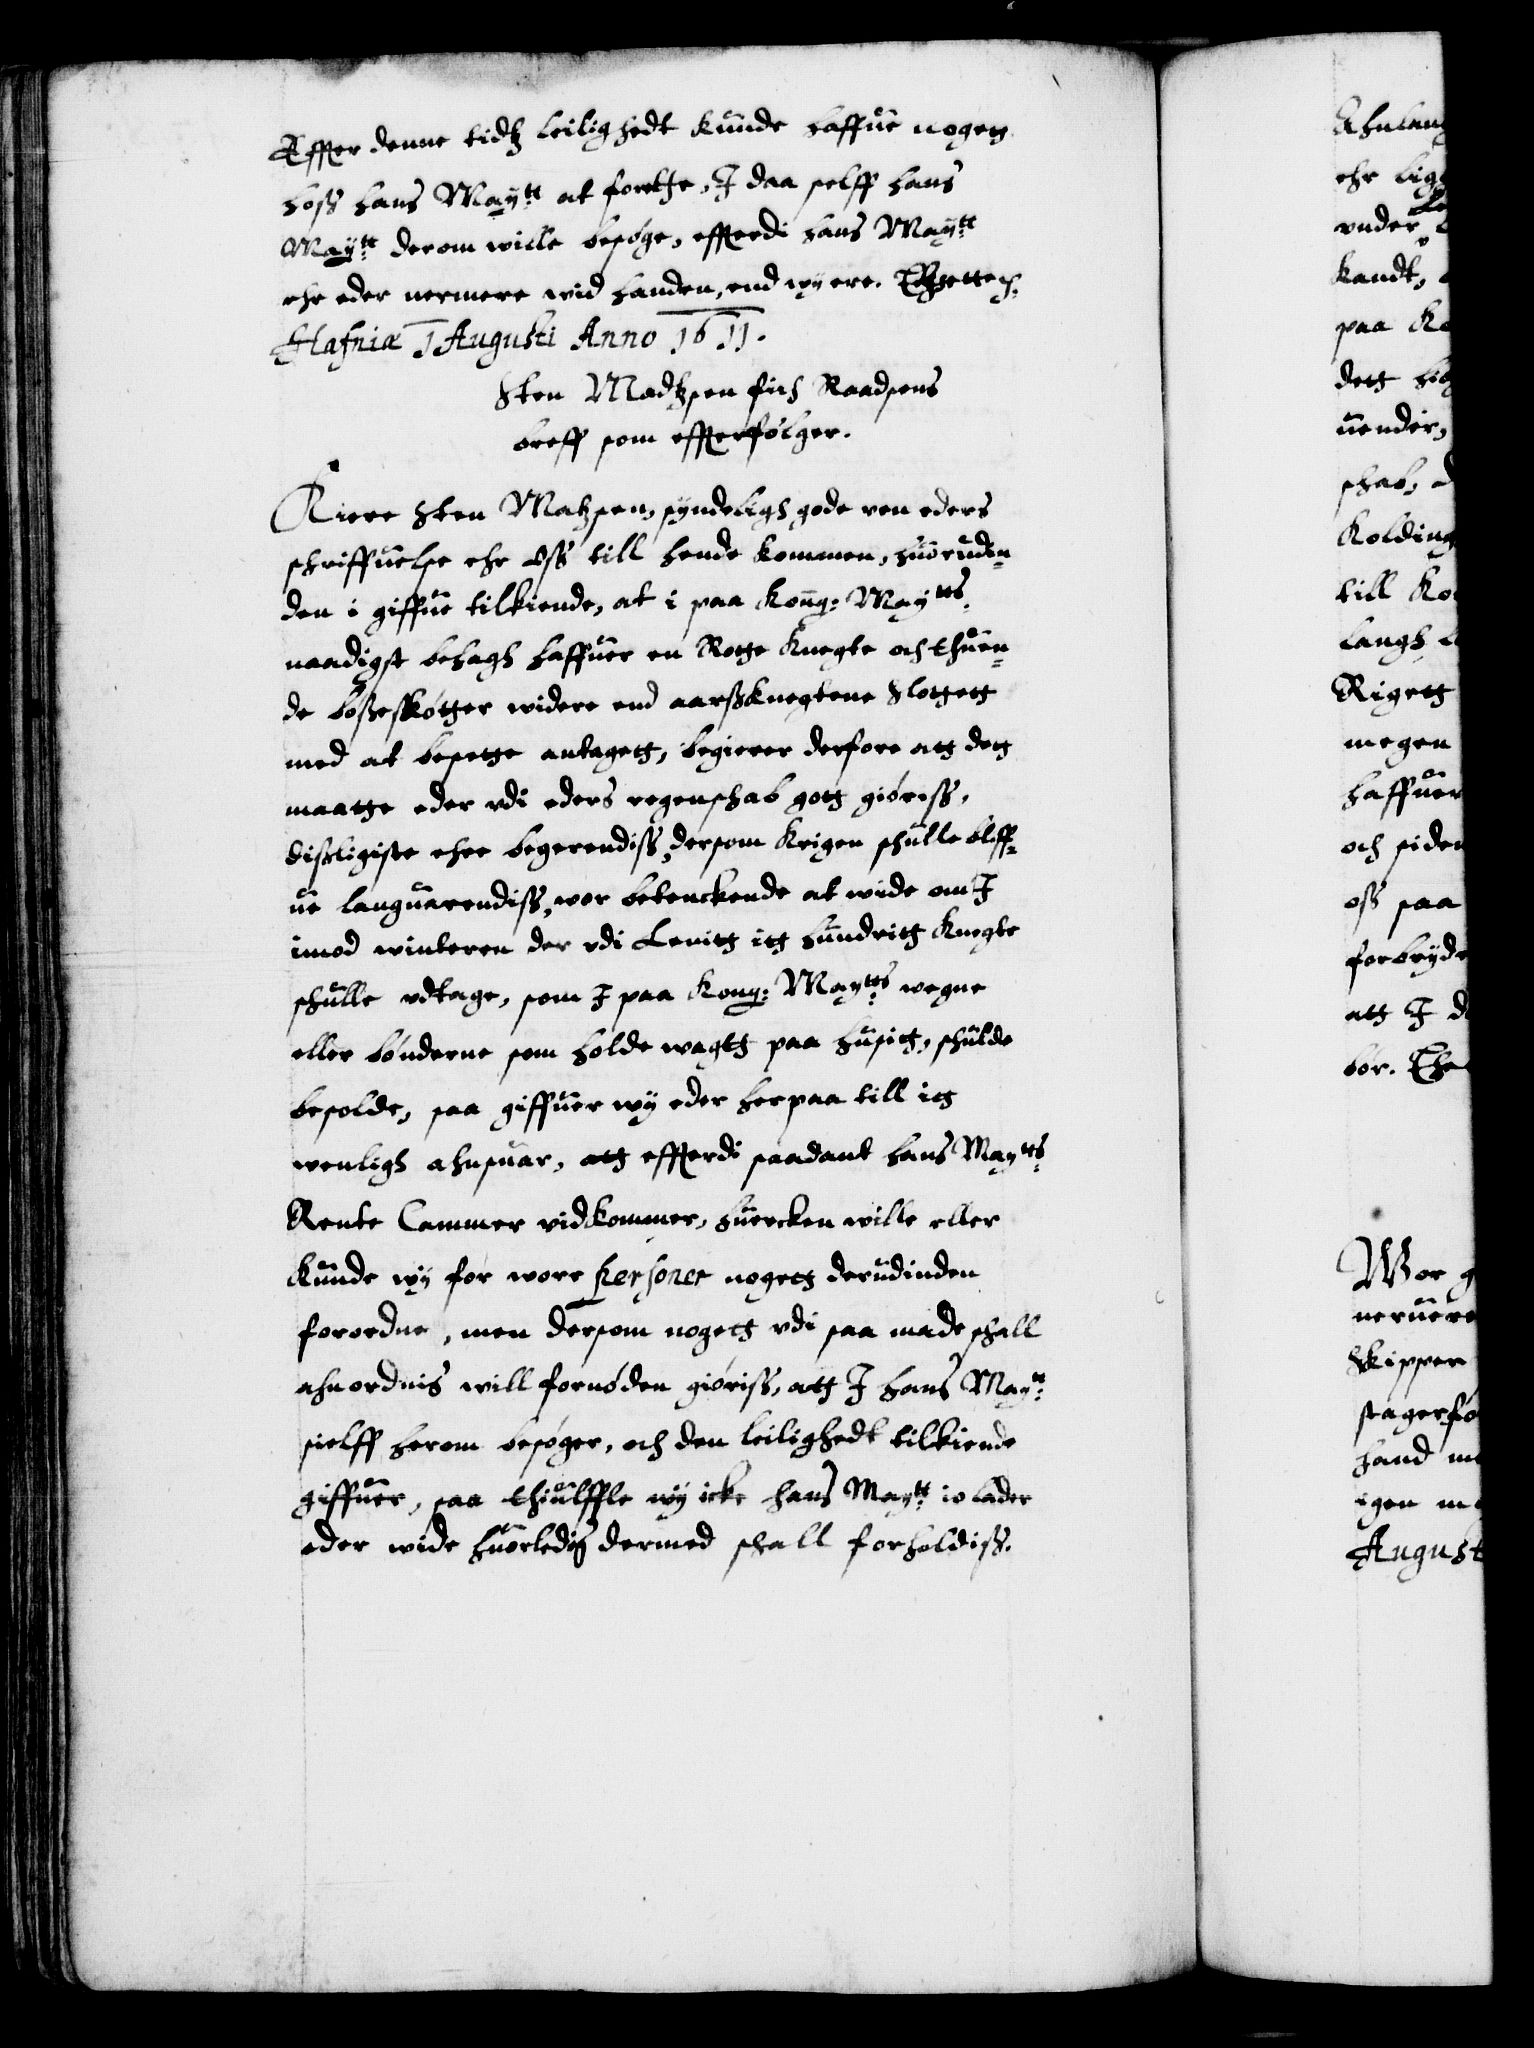 Effter denne tidtz leilighedt kunde haffue nogett
hoss hans Maÿtt at forrette, I daa selff hans
Maÿtt derom wille besøge, effterdi hans Maÿtt
ehr eder nermere wid handen, end wy ere.
Hafniæ 1 Augusti Anno 1611.
Sten Madtzsen fich Raadsens
breff som effterfølger.
Kiere Sten Matzsen, synderligh gode ven eders
schriffuelse ehr oss till hende kommen, huorudin-
den i giffue tilkiende, at i paa Kong: Maÿtts
naadigst behagh haffuer en Rotte Knegte och thuen-
de bøsseskøtter widere end aarssknegtene Slottett
med at besette antagett, begierer derfore att dett
maatte eder vdi eders regenschab gott giøriss,
disligiste ehre begerendiss, dersom Krigen schulle bliff-
ue languarendiss, wor betenckende at wide om I
imod winteren der vdi Lenitt itt hundritt Knegte
schulle vdtage, som I paa Kong: Maÿtts wegne
eller bønderne som holde wagtt paa husitt, schulde
besolde, saa giffuer wÿ eder herpaa till itt
wenligh ahnsuar, att effterdi saadant hans Maÿtts
Rente Cammer vidkommer, huercken wille eller
kunde wÿ for wore personer nogett derudinden
forordne, men dersom nogett vdi saa made schall
ahnordnis will fornøden giøriss, att I hans Maÿtt
sielff herom besøger, och den leilighedt tilkiende
giffuer, saa thiulffle wÿ icke hans Maÿtt io lader
eder wide huorledis dermed schall forholdiss.
ehr
vnder
kandt,
paa
dett
uender,
schab,
Kolding
till
langh
Rigett
megen
haffuer
och siden
oss saa
forbryde
att I
bør.
Wor
neruere
Skipper
hand
igen
August